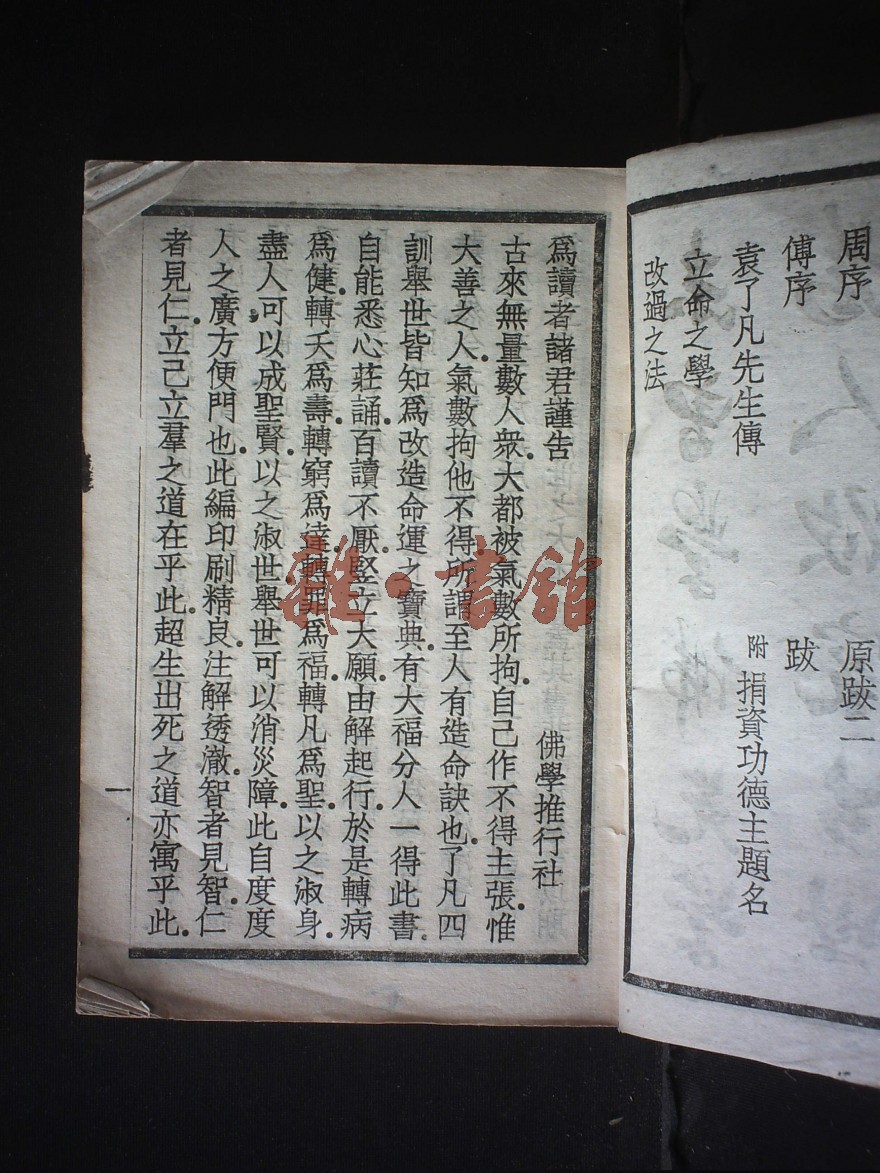 周序
原跋二
傅序
跋
袁了凡先生傳
附 捐資功德主題名
立命之學
改過之法
爲讀者諸君謹告
佛學推行社
古來無量數人衆。大都被氣數所拘。自己作不得主張。惟
大善之人。氣數拘他不得。所謂至人有造命訣也。了凡四
訓舉世皆知爲改造命運之寶典。有大福分人。一得此書。
自能悉心莊誦。百讀不厭。竪立大願。由解起行。於是轉病
爲健。轉夭爲壽。轉窮爲達。轉罪爲福。轉凡爲聖。以之淑身。
盡人可以成聖賢。以之淑世。舉世可以消災障。此自度度
人之廣方便門也。此編印刷精良。注解透澈。智者見智。仁
者見仁。立己立羣之道在乎此。超生出死之道亦寓乎此。
一
雜·書館